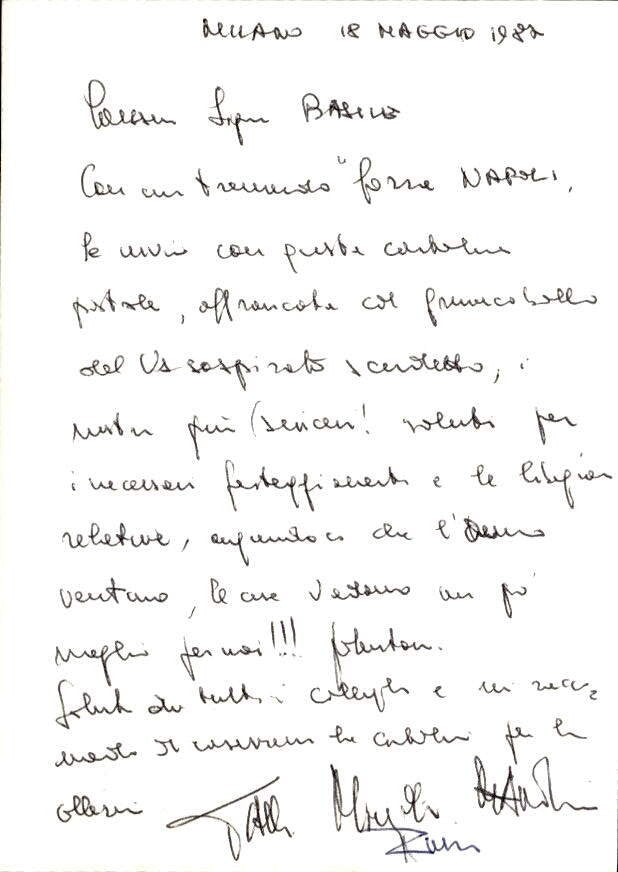 MILANO 18 MAGGIO 1987
Signor BASILE
Con un tremendo "forza NAPOLI,
le invio con questa cartolina
postale, affrancata col francobollo
del Vs sospirato scudetto, i
nostri più (sinceri! saluti per
i necessari festeggiamenti e le
relative, augurandoci che l'anno
venturo, le cose vadano un po'
meglio per noi!!!
Saluti da tutti i colleghi e mi
di conservare la cartolina per la